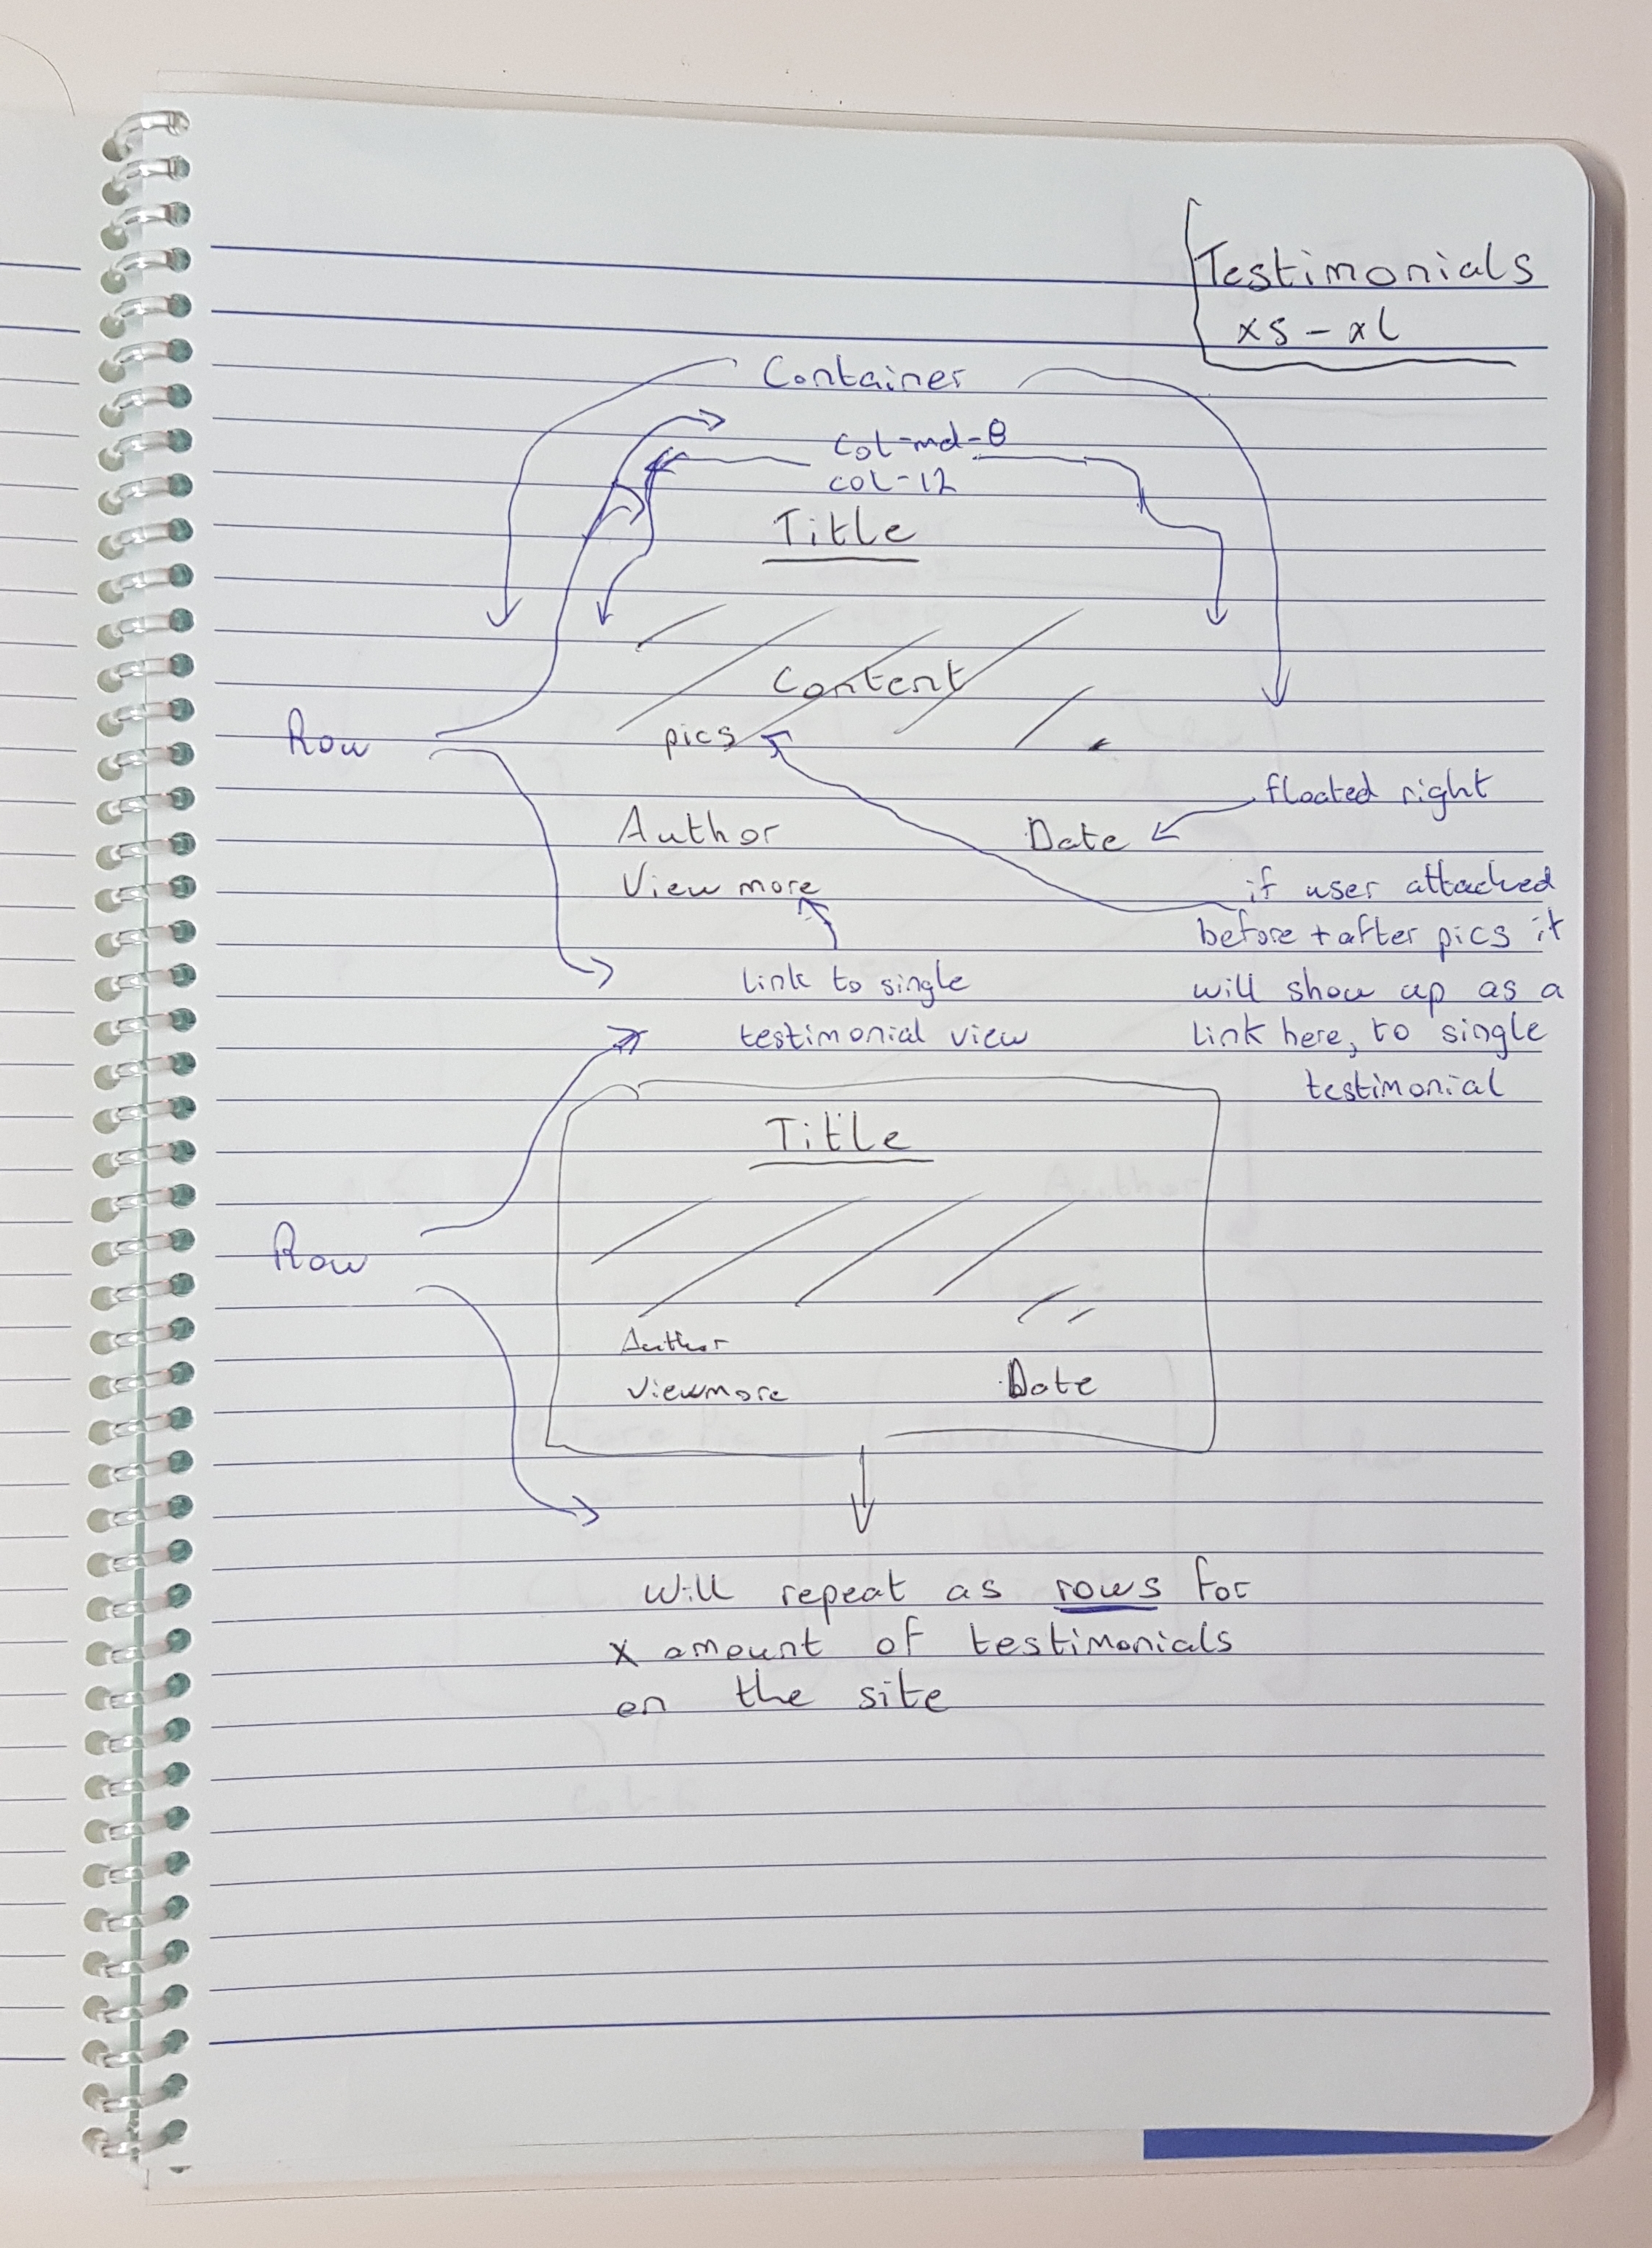 Testimonials
xs - xl
Container
col-md-8
col-12
Title
Content
pics
Row
floated right
Author
Date
View more
if user attached
before + after pics it
will show up as a
link here, to single
testimonial
link to single
testimonial view
Title
Row
Author
Viewmore
Date
Will repeat as rows for
x amount of testimonials
on the site